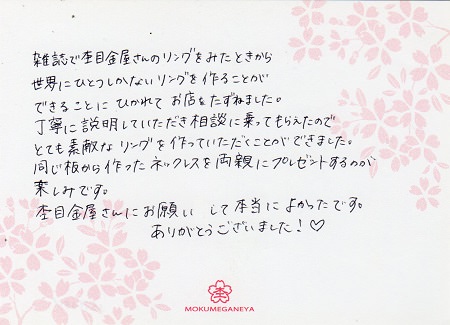 雑誌で杢目金屋さんのリングをみたときから
世界にひとつしかないリングを作ることが
できることにひかれてお店をたずねました。
丁寧に説明していただき相談に乗ってもらえたので
とても素敵なリングを作っていただくことができました。
同じ板から作ったネックレスを両親にプレゼントするのが
楽しみです。
杢目金屋さんにお願いして本当によかったです。
ありがとうございました！♡
杢
MOKUMEGANEYA